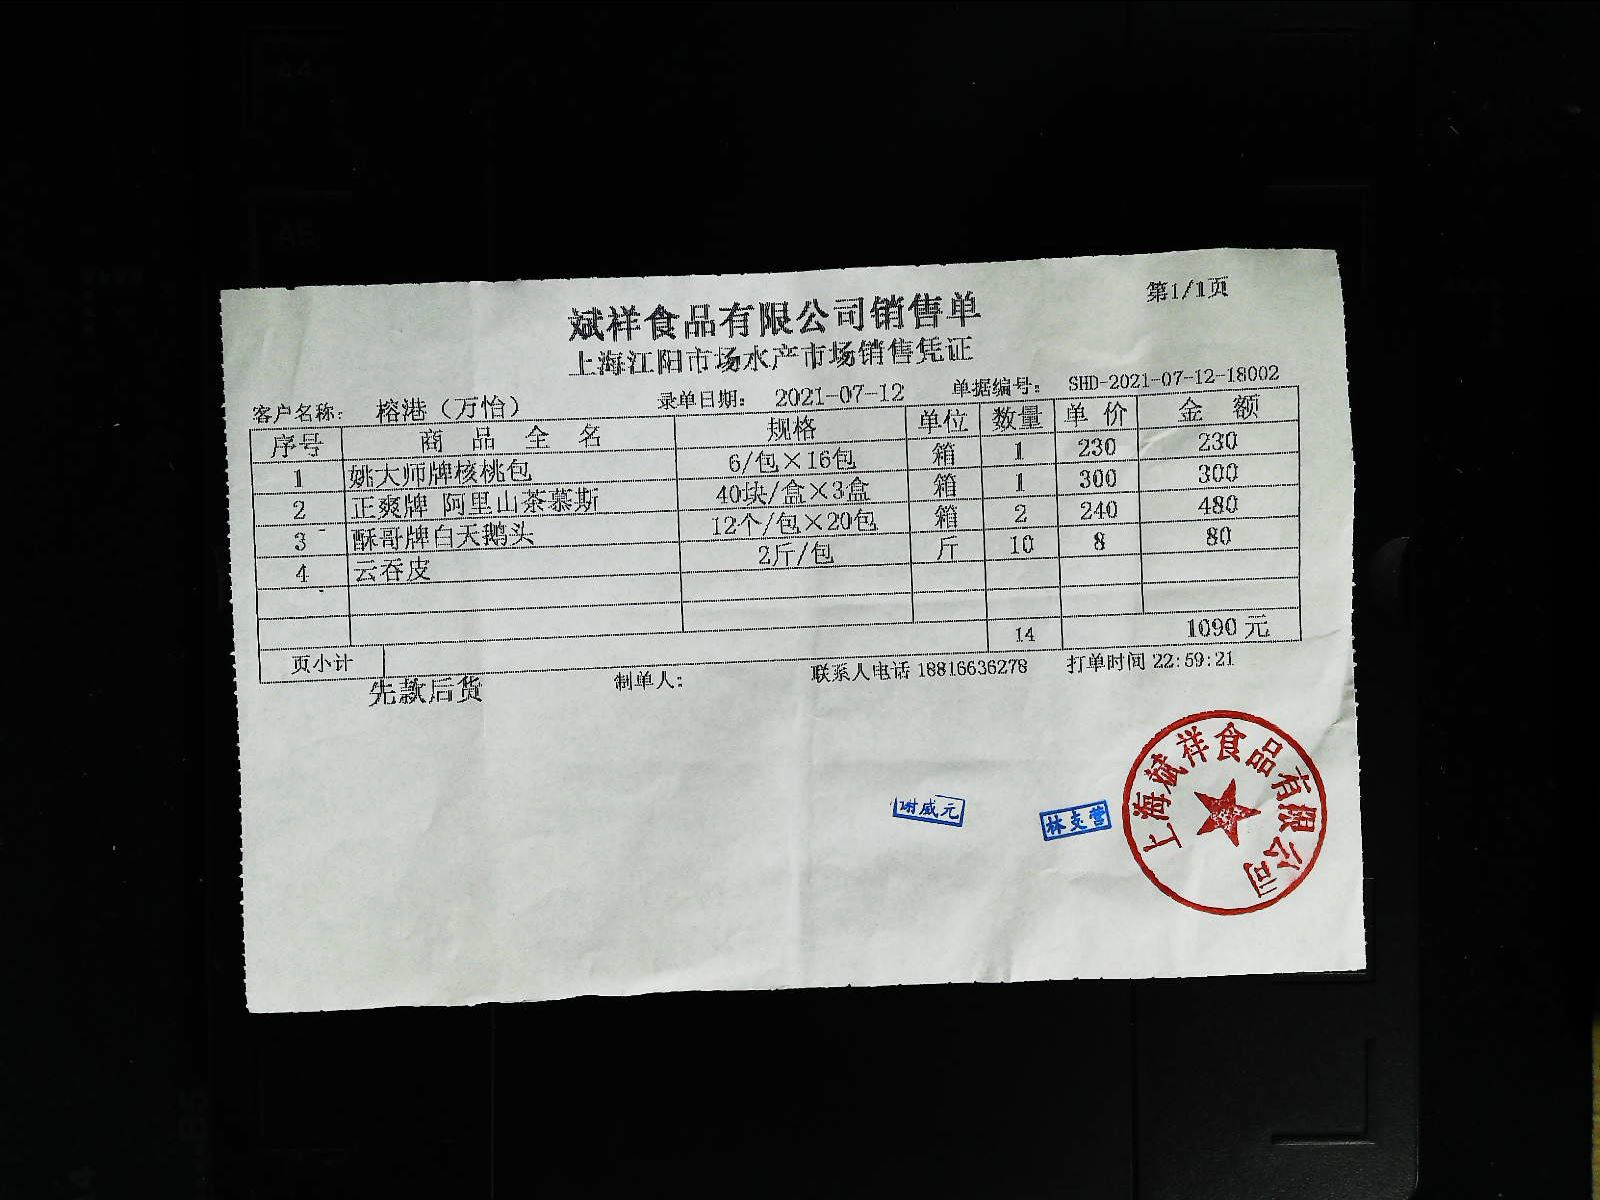 第1/1页
斌祥食品有限公司销售单
上海江阳市场水产市场销售凭证
客户名称： 榕港（万怡） 录单日期： 2021-07-12 单据编号： SHD-2021-07-12-18002
序号 商 品 全 名 规格 单位 数量 单 价 金 额
1 姚大师牌核桃包 6/包×16包 箱 1 230 230
2 正爽牌 阿里山茶慕斯 40块/盒×3盒 箱 1 300 300
3 酥哥牌白天鹅头 12个/包×20包 箱 2 240 480
4 云吞皮 2斤/包 斤 10 8 80
页小计 14 1090 元
先款后货 制单人： 联系人电话 18816636278 打单时间 22:59:21
上海斌祥食品有限公司
谢威元